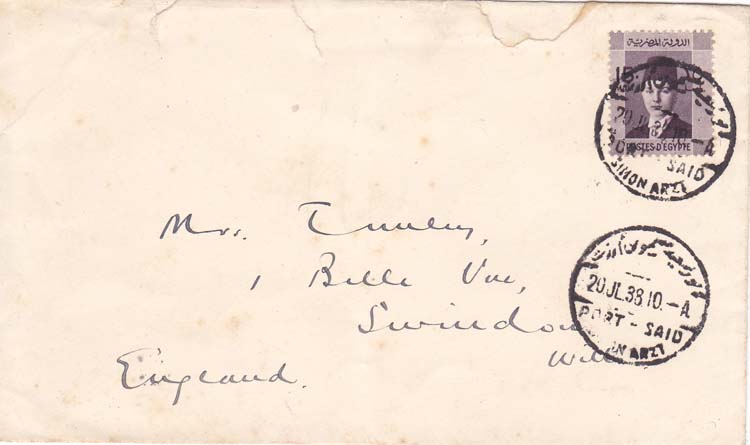 الدولة المصرية
15
POSTES-D'EGYPTE
20 JL.38.10.-A
PORT - SAID
SIMON ARZT
Mrs.
1 Belle Vue,
Swindon
Wilts
England.
20 JL.38.10.-A
PORT - SAID
SIMON ARZT